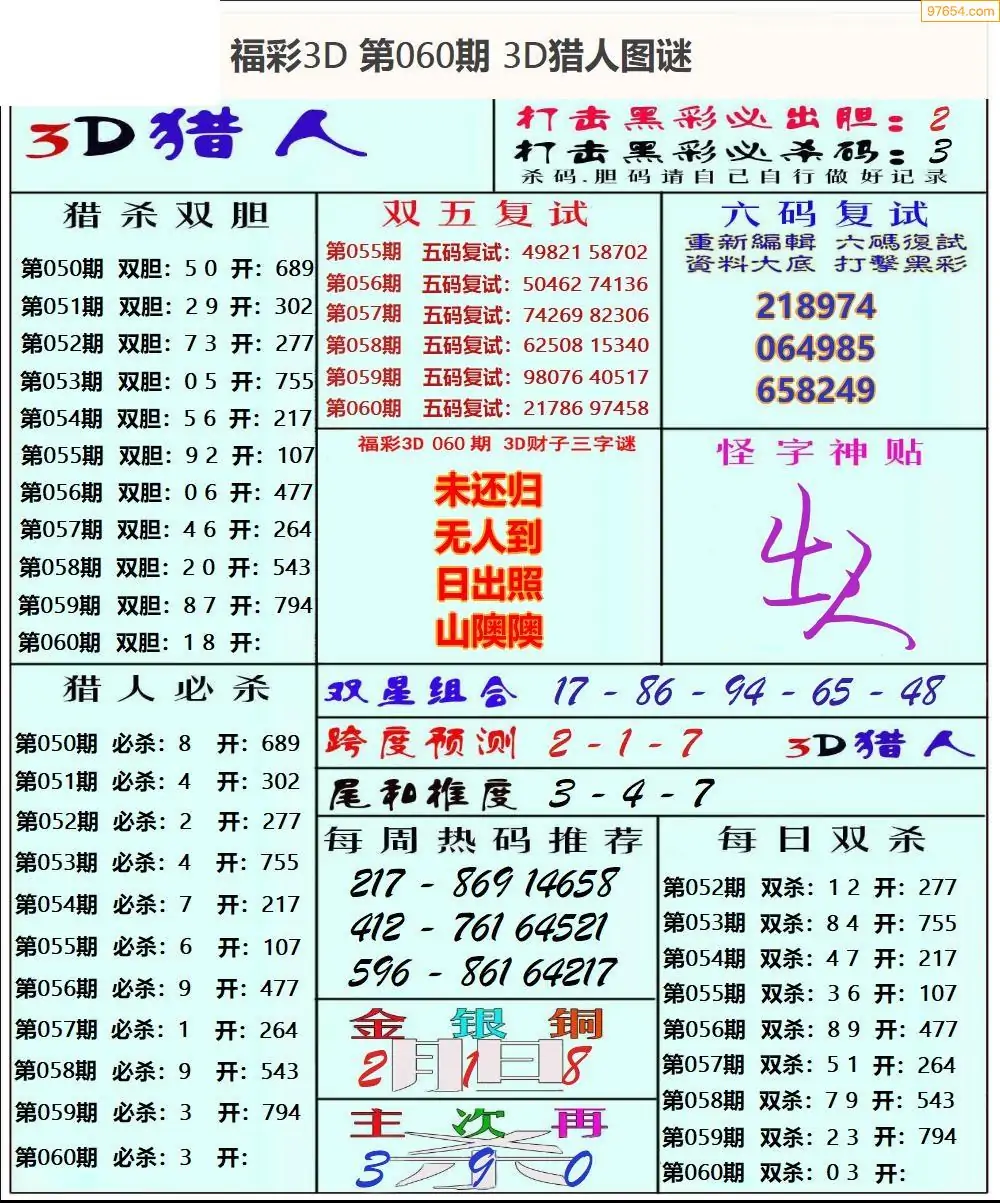 97654.com
福彩3D 第060期 3D猎人图谜
3D猎人
打击黑彩必出胆：2
打击黑彩必杀码：3
杀码.胆码请自己自行做好记录
猎杀双胆
第050期 双胆：5 0 开：689
第051期 双胆：2 9 开：302
第052期 双胆：7 3 开：277
第053期 双胆：0 5 开：755
第054期 双胆：5 6 开：217
第055期 双胆：9 2 开：107
第056期 双胆：0 6 开：477
第057期 双胆：4 6 开：264
第058期 双胆：2 0 开：543
第059期 双胆：8 7 开：794
第060期 双胆：1 8 开：
双五复试
第055期 五码复试：49821 58702
第056期 五码复试：50462 74136
第057期 五码复试：74269 82306
第058期 五码复试：62508 15340
第059期 五码复试：98076 40517
第060期 五码复试：21786 97458
六码复试
重新編輯 六碼復試
資料大底 打擊黑彩
218974
064985
658249
福彩3D 060 期 3D财子三字谜
未还归
无人到
日出照
山隩隩
怪字神贴
猎人必杀
第050期 必杀：8 开：689
第051期 必杀：4 开：302
第052期 必杀：2 开：277
第053期 必杀：4 开：755
第054期 必杀：7 开：217
第055期 必杀：6 开：107
第056期 必杀：9 开：477
第057期 必杀：1 开：264
第058期 必杀：9 开：543
第059期 必杀：3 开：794
第060期 必杀：3 开：
双星组合 17 - 86 - 94 - 65 - 48
跨度预测 2 - 1 - 7 3D猎人
尾和推度 3 - 4 - 7
每周热码推荐
217 - 869 14658
412 - 761 64521
596 - 861 64217
金银铜
胆
2 1 8
主次再
杀
3 9 0
每日双杀
第052期 双杀：1 2 开：277
第053期 双杀：8 4 开：755
第054期 双杀：4 7 开：217
第055期 双杀：3 6 开：107
第056期 双杀：8 9 开：477
第057期 双杀：5 1 开：264
第058期 双杀：7 9 开：543
第059期 双杀：2 3 开：794
第060期 双杀：0 3 开：